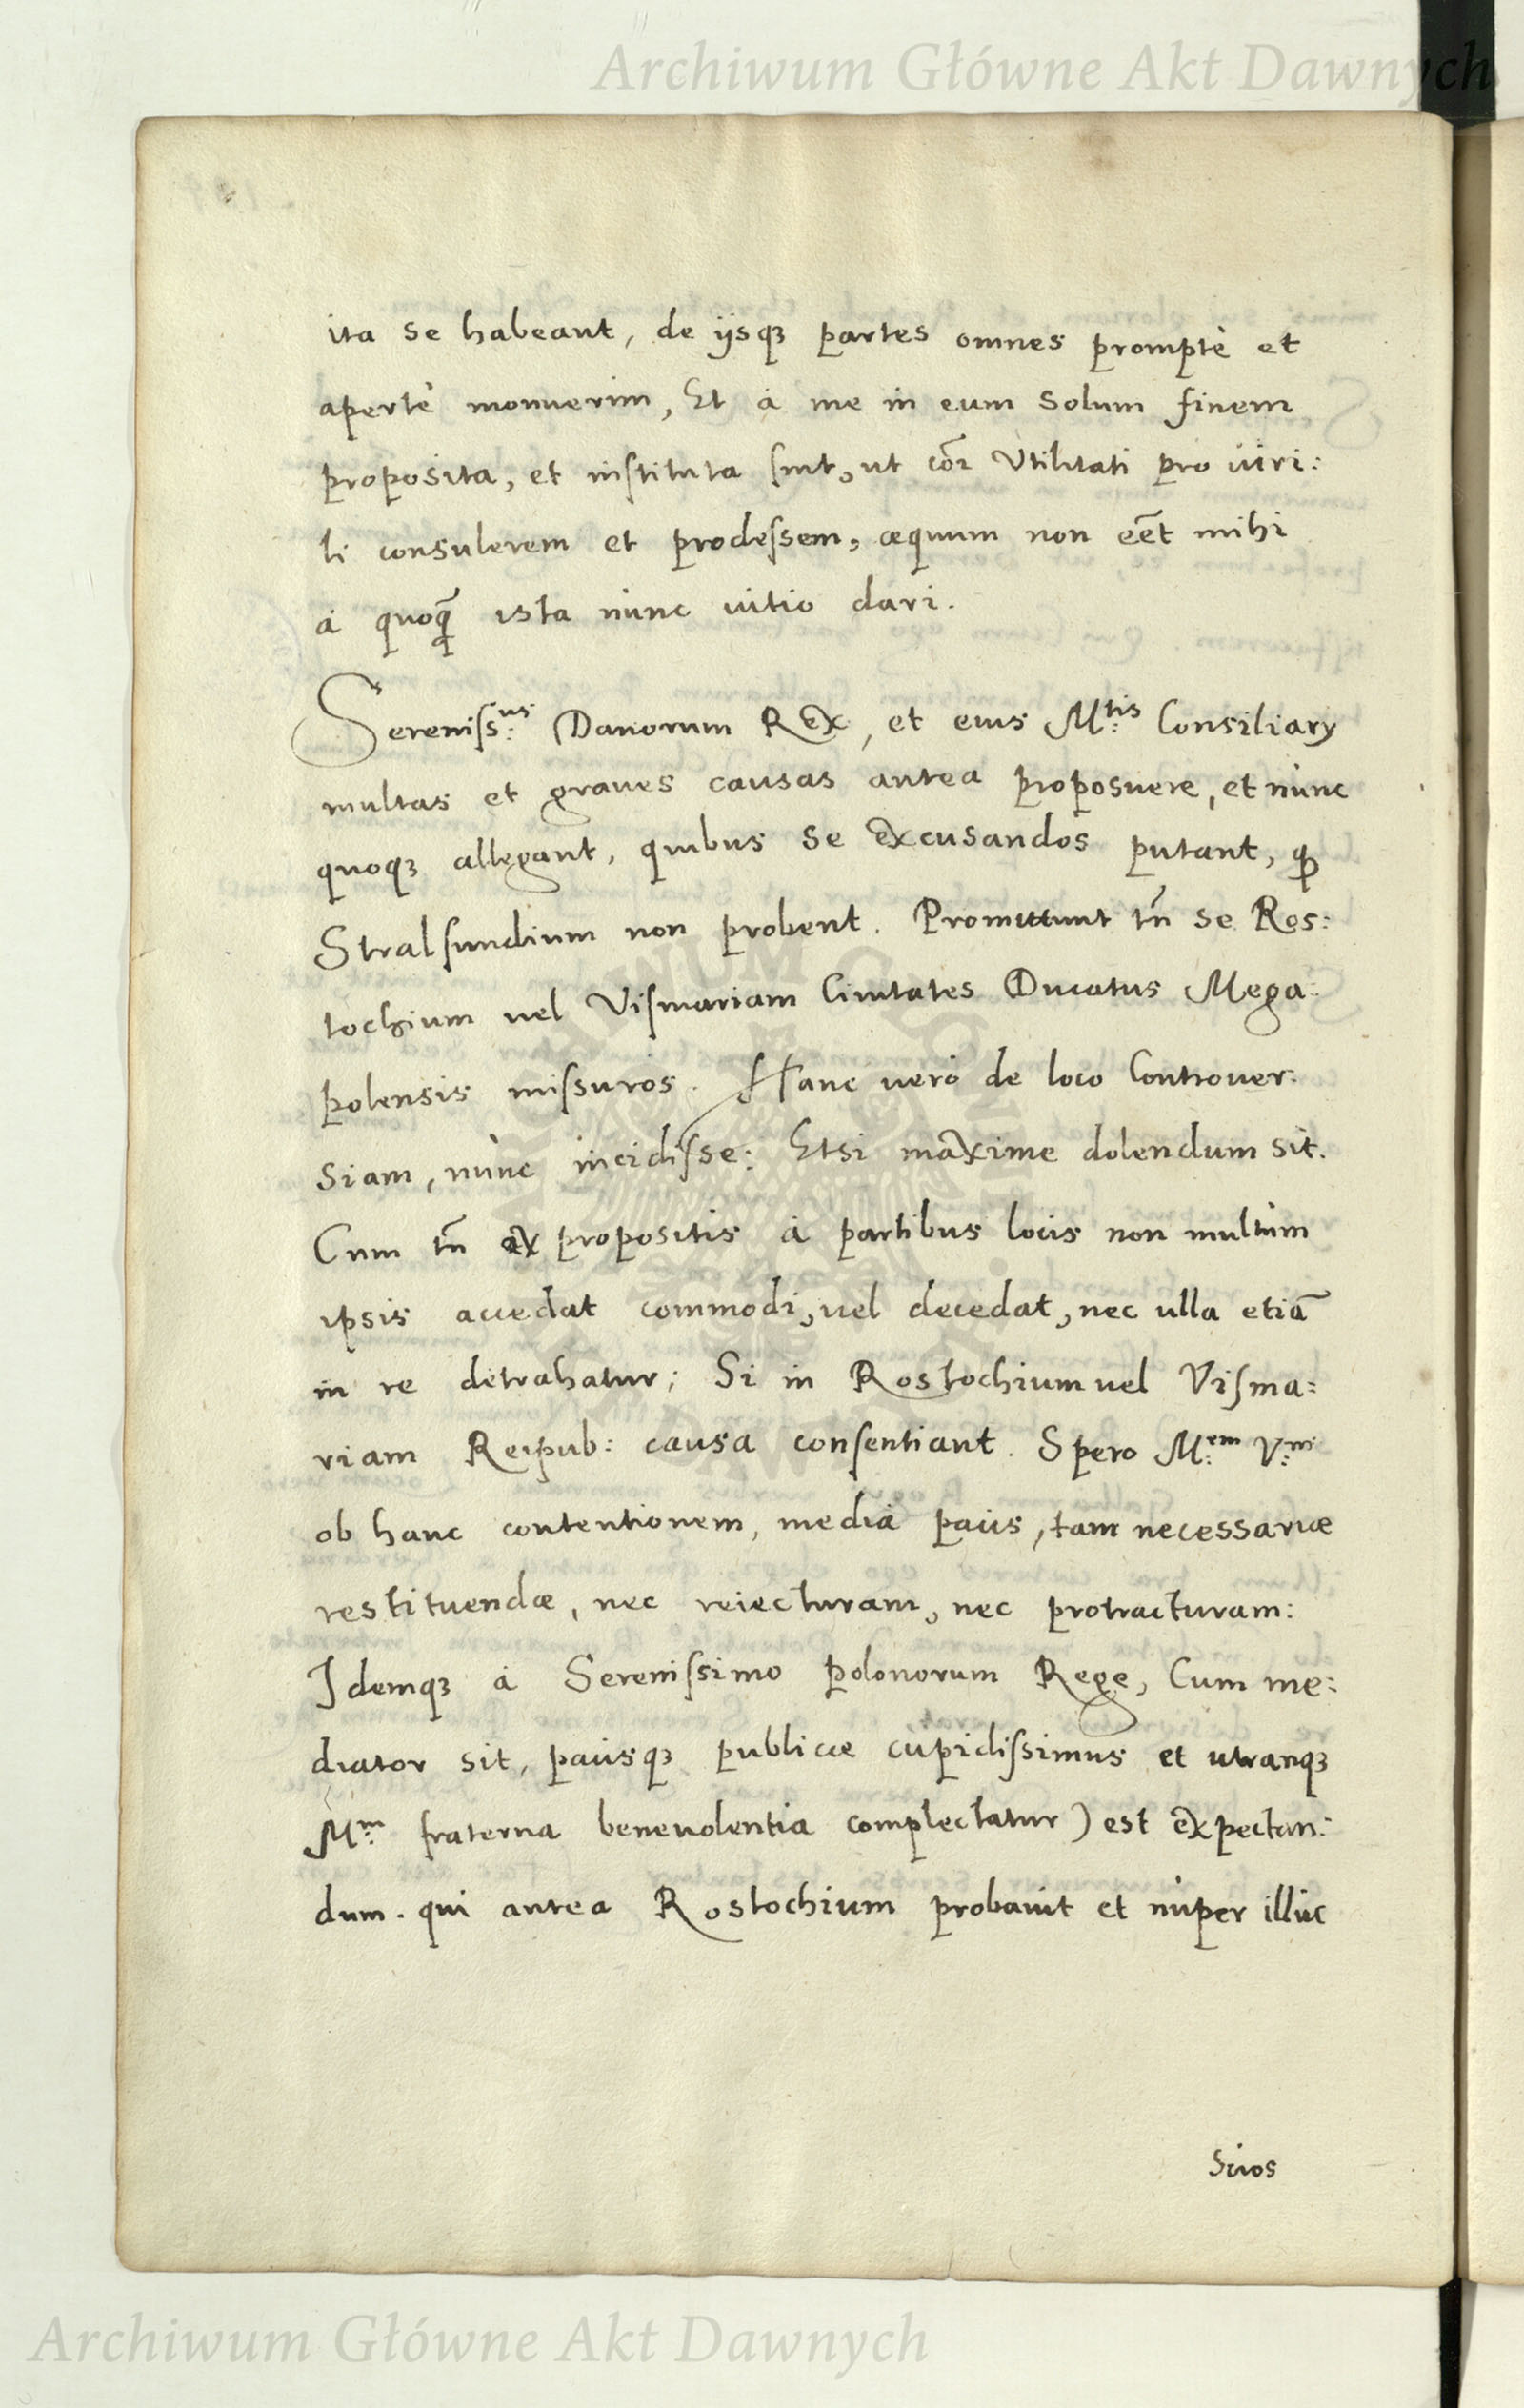 Archiwum Główne Akt Dawnych
ita se habeant, de ijsqꝫ partes omnes promptè et
apertè monuerim, Et à me in eum solum finem
proposita, et instituta sint, ut cõi Vtilitati pro viri:
li consulerem et prodessem, æquum non eẽt mihi
à quoqꝫ̃ ista nùnc uitio dari.
Sereniss:us Danorum Rex, et eius M:tis Consiliarij
multas et graues causas antea proposuere, et nùnc
quoqꝫ allegant, quibus se excusandos putant, ꝙ
Stralsundium non probent. Promittunt tñ se Ros:
tochium uel Vismariam Ciuitates Ducatus Mega:
polensis missuros. Hanc uerò de loco Controuer:
siam, nùnc incidisse: Etsi maxime dolendum sit.
Cum tñ ex propositis à partibus locis non multùm
ipsis accedat commodi, uel decedat, nec ulla etiã
in re detrahatur; Si in Rostochium uel Visma:
riam Reipub: causa consentiant. Spero M:em V:m
ob hanc contentionem, media pacis, tam necessariæ
restituendæ, nec reiecturam, nec protracturam:
Idemqꝫ à Serenissimo Polonorum Rege, Cum me:
diator sit, pacisqꝫ publicæ cupidissimus et utranqꝫ
M:m fraterna beneuolentia complectatur) est expectan:
dum. qui antea Rostochium probauit et nùper illuc
Suos
Archiwum Główne Akt Dawnych